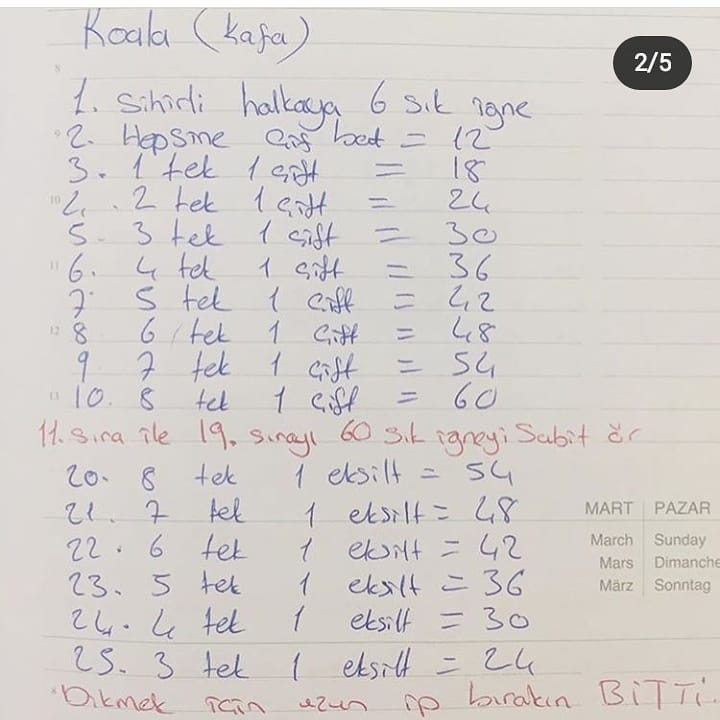 Koala (Kafa)
2/5
8
1. Sihirli halkaya 6 sık iğne
9 2. Hepsine çif bat = 12
3. 1 tek 1 çift = 18
10 4. 2 tek 1 çift = 24
5. 3 tek 1 çift = 30
11 6. 4 tek 1 çift = 36
7. 5 tek 1 çift = 42
12 8 6 tek 1 çift = 48
9 7 tek 1 çift = 54
13 10. 8 tek 1 çift = 60
11. Sıra ile 19. sırayı 60 sık iğneyi Sabit ör
20. 8 tek 1 eksilt = 54
21. 7 tek 1 eksilt = 48
MART PAZAR
22. 6 tek 1 eksilt = 42
March Sunday
Mars Dimanche
23. 5 tek 1 eksilt = 36
März Sonntag
24. 4 tek 1 eksilt = 30
25. 3 tek 1 eksilt = 24
Dikmek için uzun ip bırakın BİTTİ.